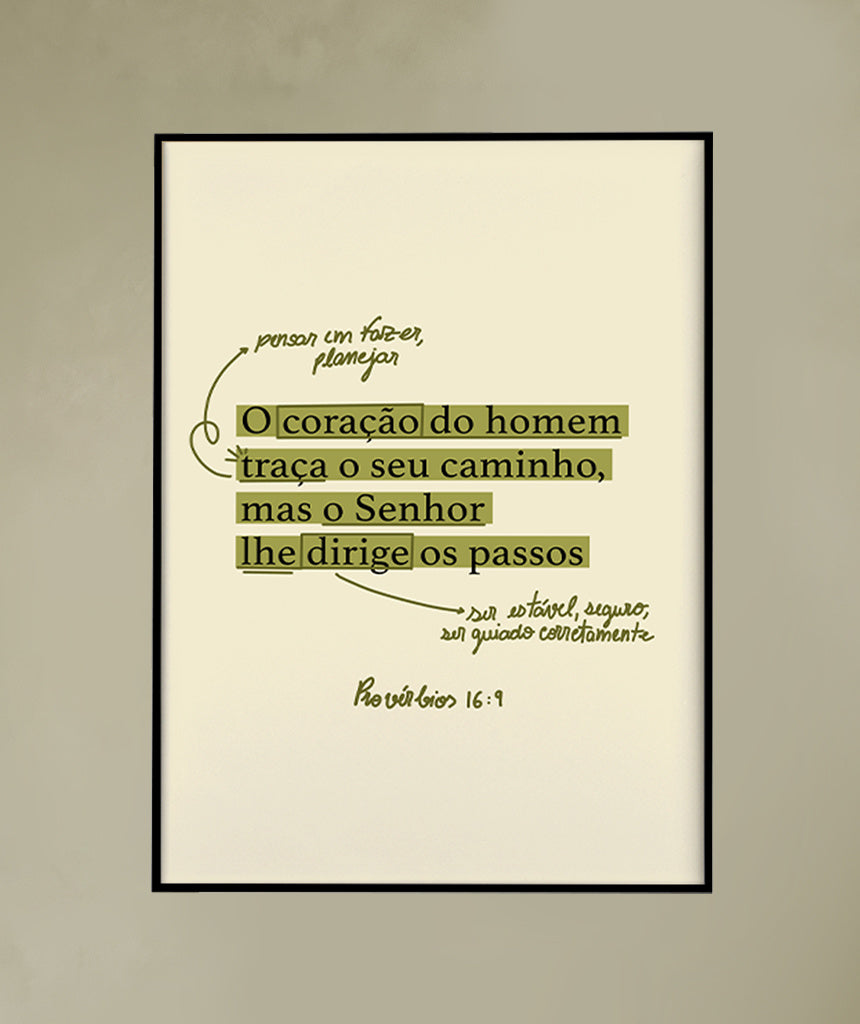 pensar em fazer,
planejar
O coração do homem
traça o seu caminho,
mas o Senhor
lhe dirige os passos
ser estável, seguro,
ser guiado corretamente
Provérbios 16:9